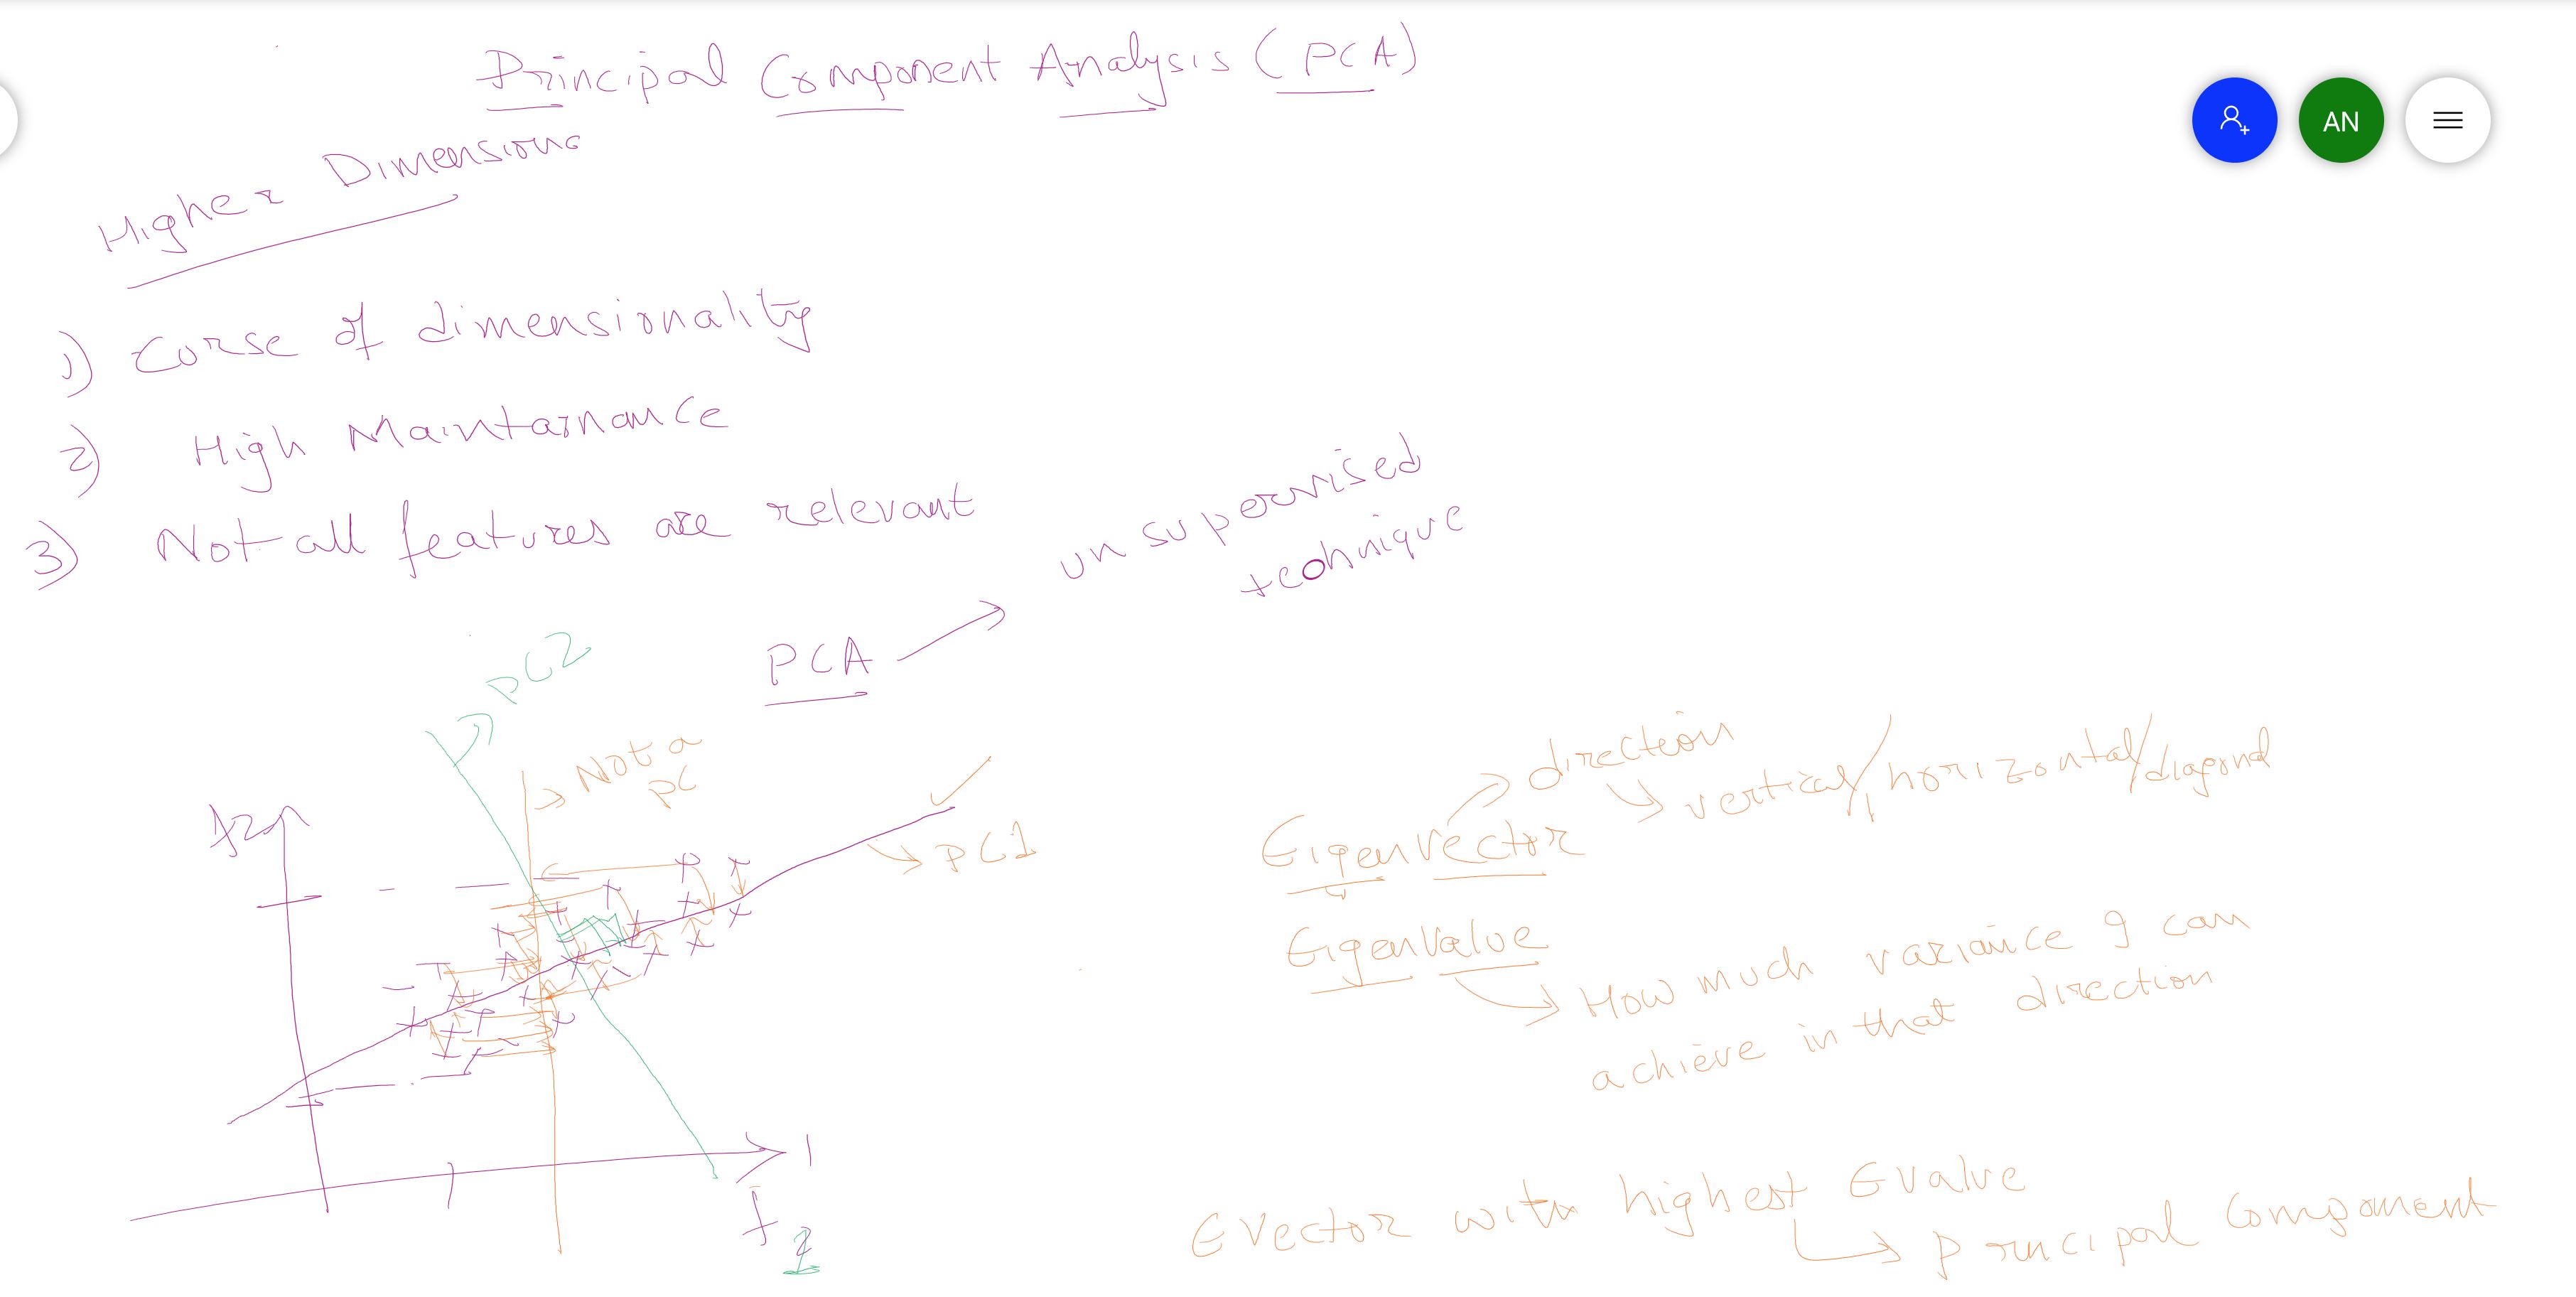 Principal Component Analysis (PCA)
AN
Higher Dimensions
1) Curse of dimensionality
2) High Maintainance
3) Not all features are relevant
PCA → unsupervised
technique
PC2
Not a
PC
PC1
f2
f
Eigenvector
direction
vertical/horizontal/diagonal
Eigenvalue
How much variance I can
achieve in that direction
Evector with highest Evalue
principal component